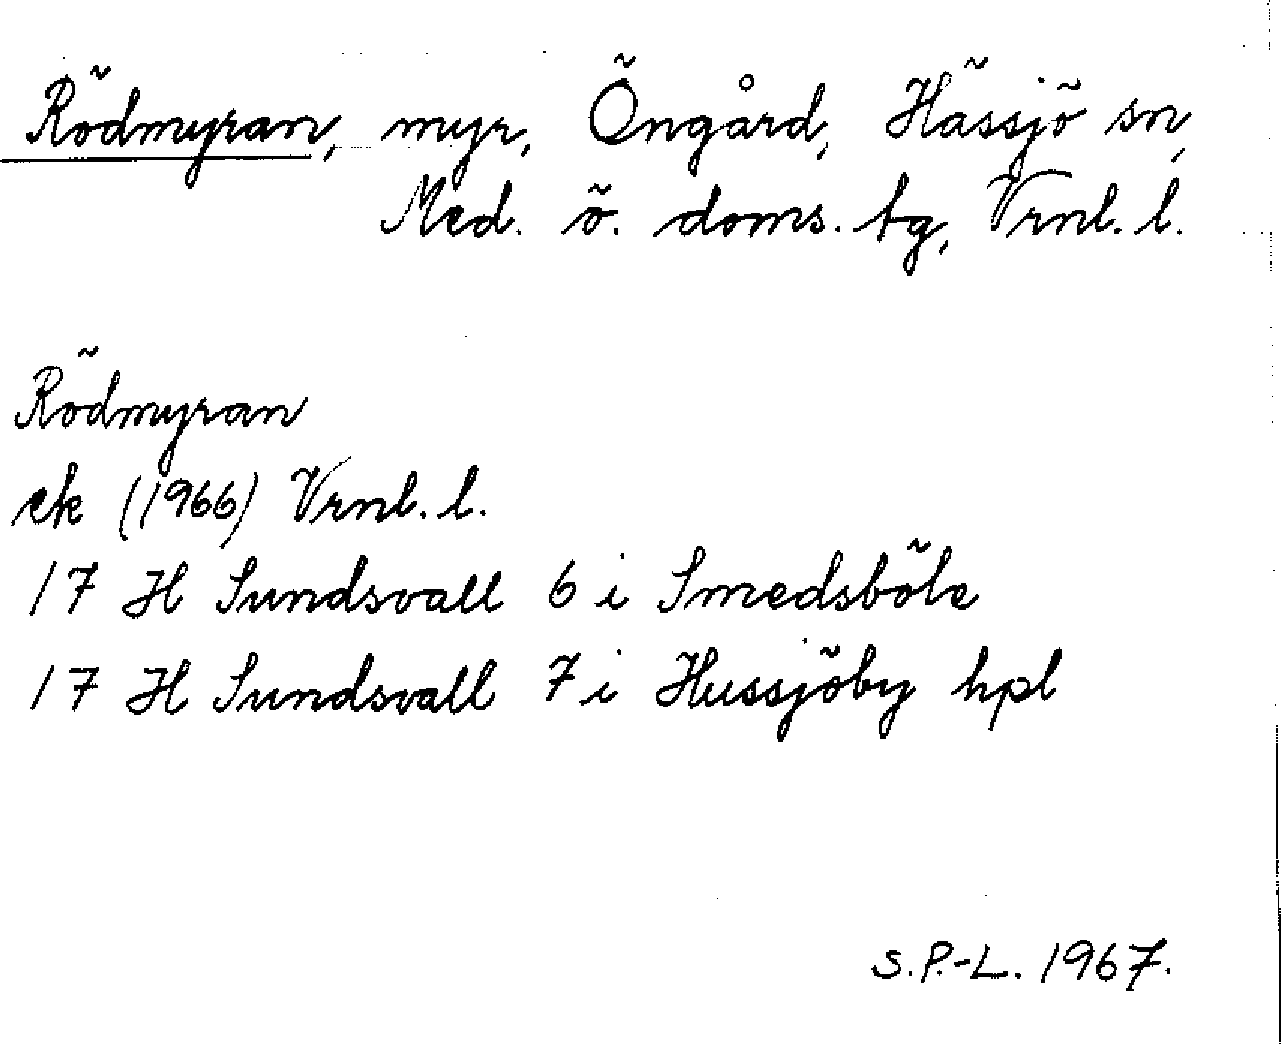 Rödmyran, myr, Öngård, Hässjö sn,
Med. ö. doms. tg, Vrnl. l.
Rödmyran
ek (1966) Vrnl. l.
17 H Sundsvall 6 i Smedsböle
17 H Sundsvall 7 i Hussjöby hpl
S.P.-L. 1967.